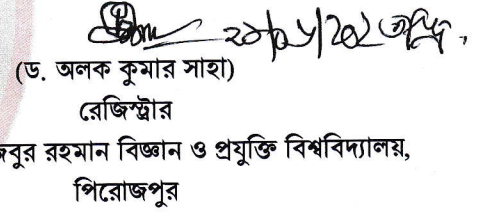 (ড. অলক কুমার সাহা)
রেজিস্ট্রার
রহমান বিজ্ঞান ও প্রযুক্তি বিশ্ববিদ্যালয়,
পিরোজপুর